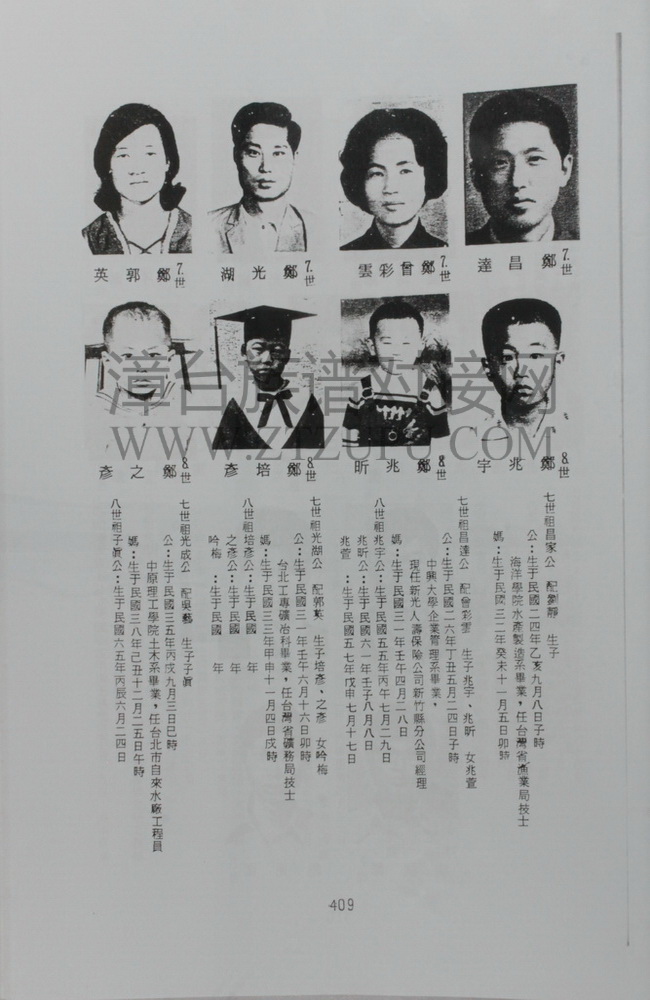 7.世 鄭昌達
7.世 鄭曾彩雲
7.世 鄭光湖
7.世 鄭郭英
8.世 鄭兆宇
8.世 鄭兆昕
8.世 鄭培彥
8.世 鄭之彥
漳台族谱对接网
WWW.ZTZUPU.COM
七世祖昌家公 配劉靜 生子
公：生于民國二四年乙亥九月八日子時
海洋學院水產製造系畢業，任台灣省漁業局技士
媽：生于民國三二年癸未十一月五日卯時
七世祖昌達公 配曾彩雲 生子兆宇、兆昕 女兆萱
公：生于民國二六年丁丑五月二四日子時
中興大學企業管理系畢業，
現任新光人壽保險公司新竹縣分公司經理
媽：生于民國三一年壬午四月二八日
八世祖兆宇公：生于民國五五年丙午七月二九日
兆昕公：生于民國六一年壬子八月八日
兆萱 ：生于民國五七年戊申七月十七日
七世祖光湖公 配郭英 生子培彥、之彥 女吟梅
公：生于民國三一年壬午六月十六日卯時
台北工專礦冶科畢業，任台灣省礦務局技士
媽：生于民國三三年甲申十一月四日戌時
八世祖培彥公：生于民國 年
之彥公：生于民國 年
吟梅 ：生于民國 年
七世祖光成公 配吳 生子子眞
公：生于民國三五年丙戌九月三日巳時
中原理工學院土木系畢業，任台北市自來水廠工程員
媽：生于民國三八年己丑十二月二五日午時
八世祖子眞公：生于民國六五年丙辰六月二四日
409